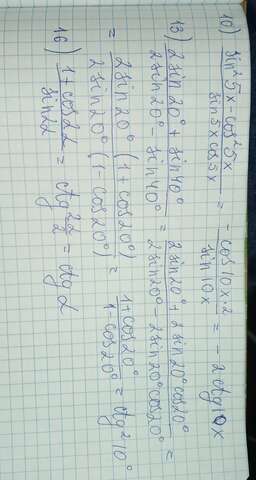 10) (sin²5x - cos²5x)/(sin5x cos5x) = - (cos10x·2)/(sin10x) = - 2ctg10x
13) (2sin20° + sin40°)/(2sin20° - sin40°) = (2sin20° + 2sin20°cos20°)/(2sin20° - 2sin20°cos20°) =
= (2sin20° (1+cos20°))/(2sin20° (1-cos20°)) = (1+cos20°)/(1-cos20°) = ctg²10°
16) (1+cos2α)/(sin2α) = ctg 2α/2 = ctgα